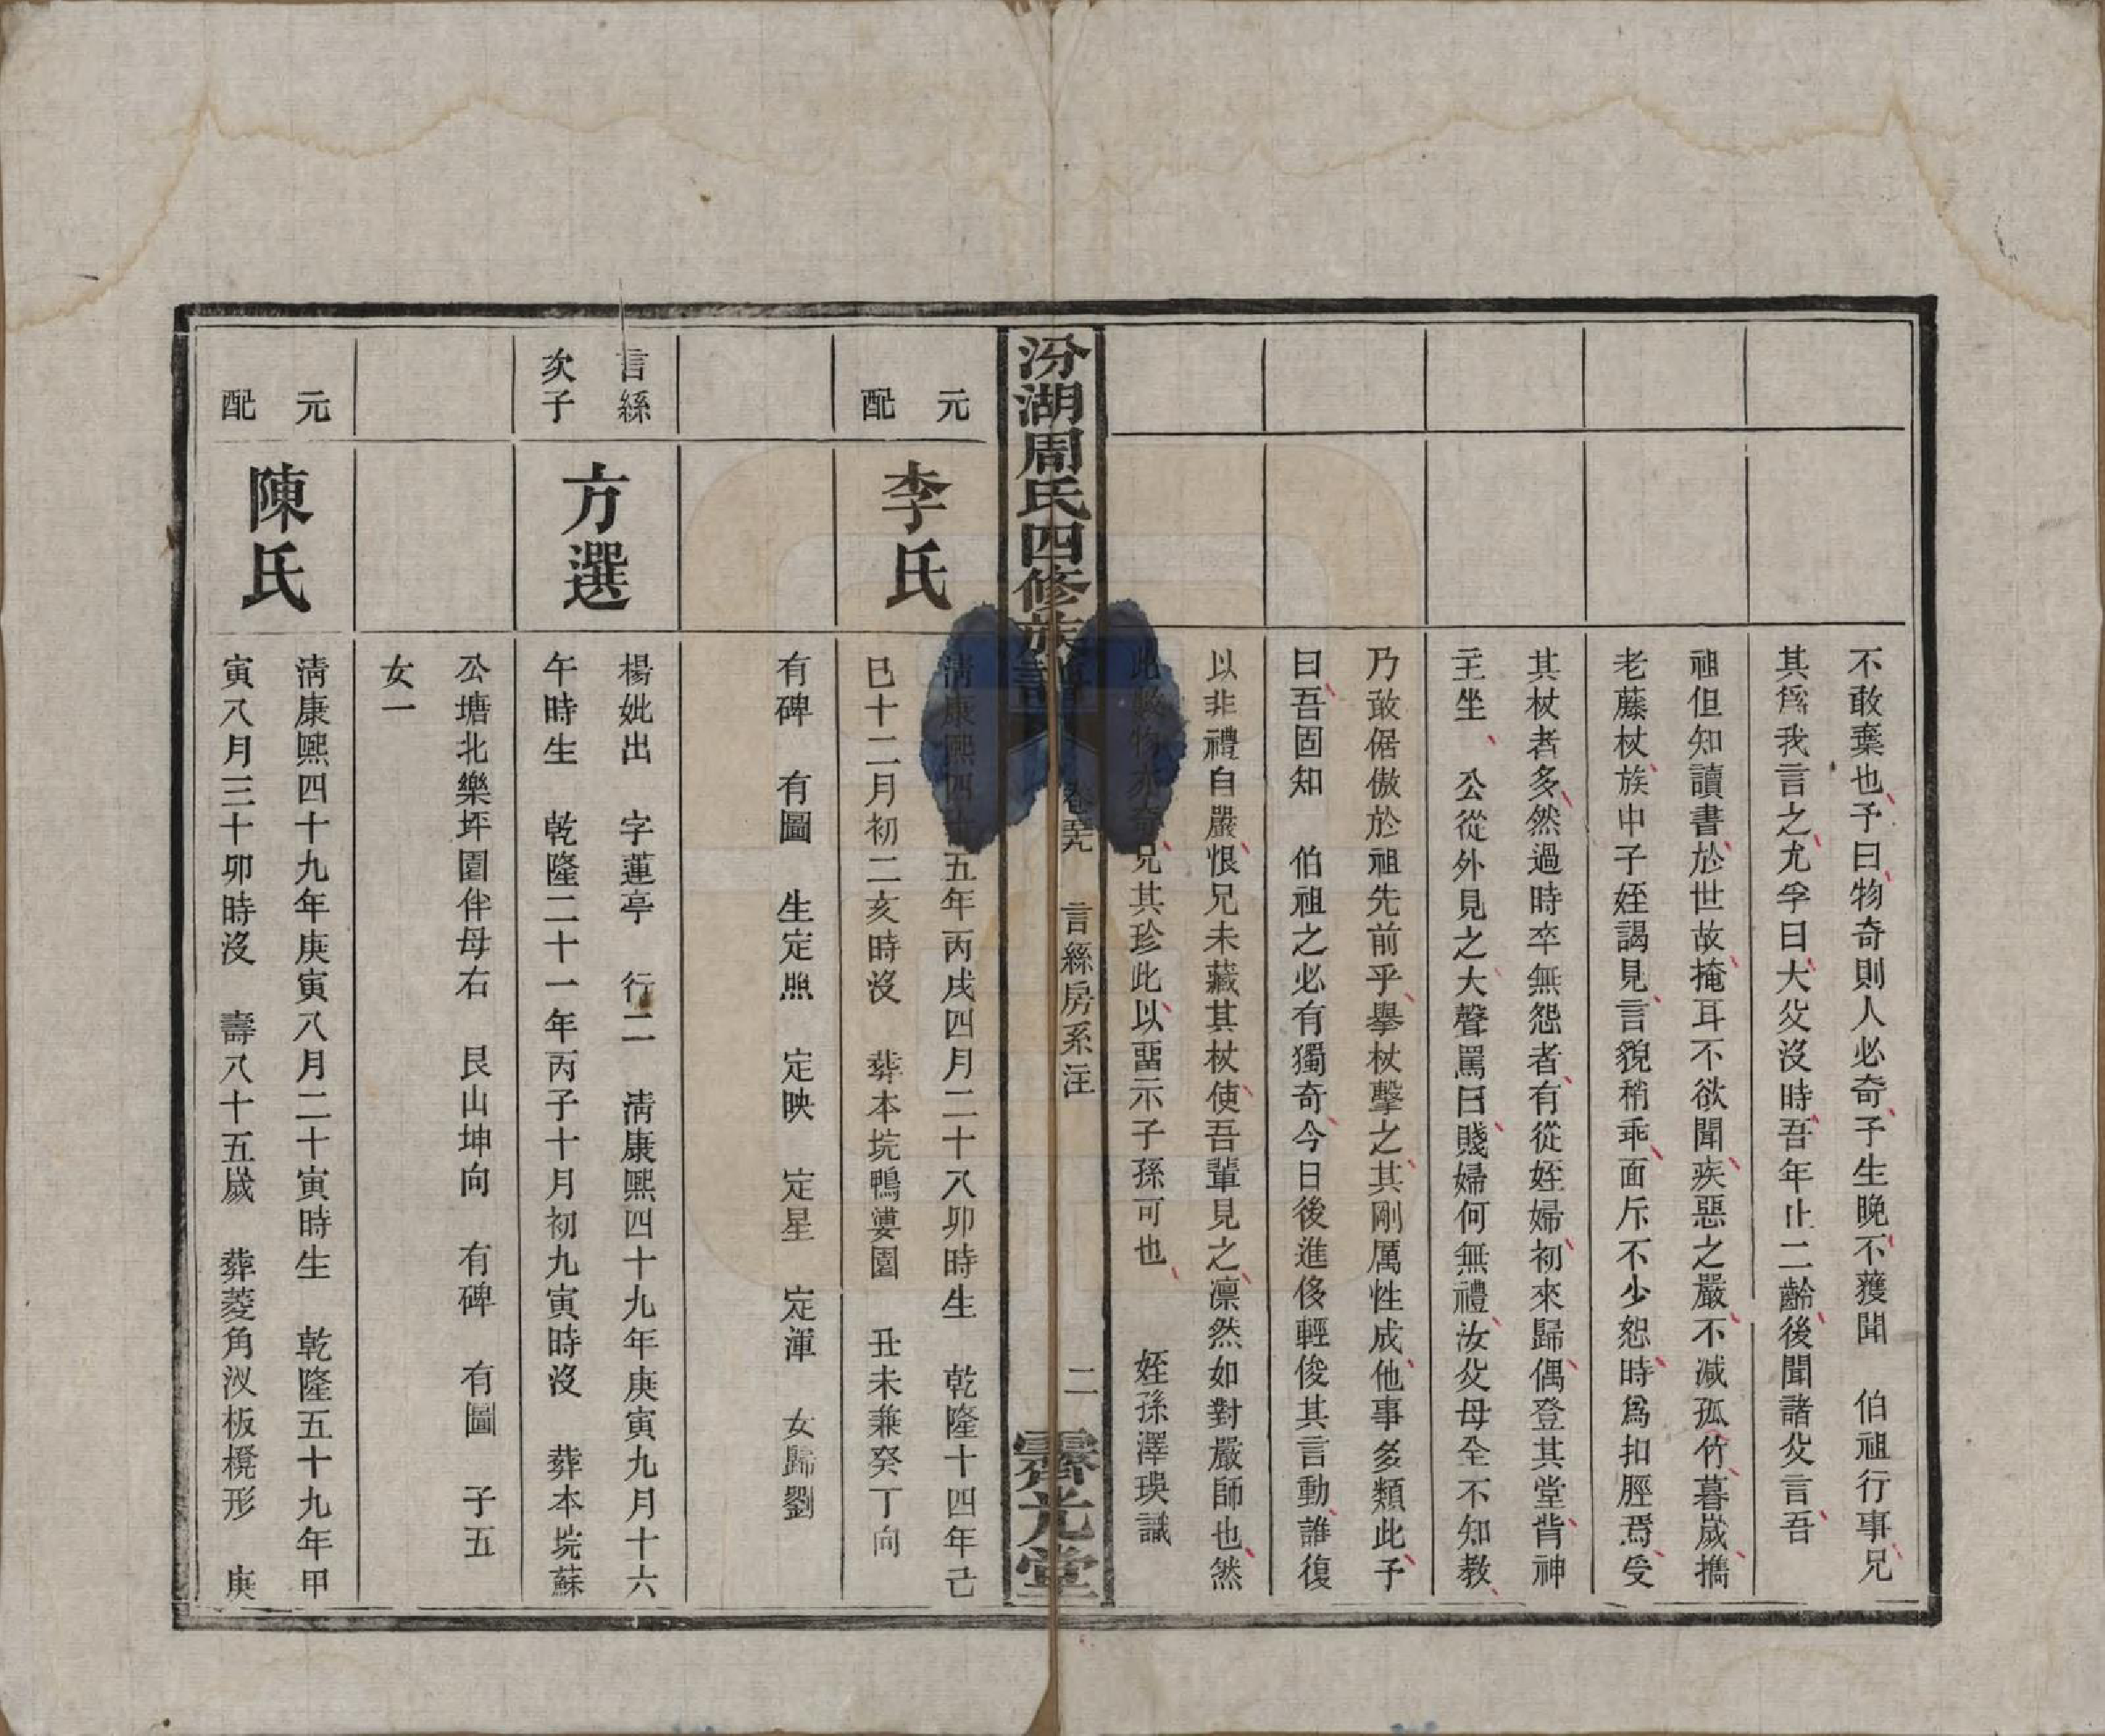 不敢棄也予曰物奇則人必奇子生晚不獲聞　伯祖行事兄
其爲我言之尤孚曰大父沒時吾年止二齡後聞諸父言吾
祖但知讀書於世故掩耳不欲聞疾惡之嚴不减孤竹暮歲擕
老藤杖族中子姪謁見言貌稍乖面斥不少恕時爲扣脛焉受
其杖者多然過時卒無怨者有從姪婦初來歸偶登其堂背神
主坐　公從外見之大聲罵曰賤婦何無禮汝父母全不知教
乃敢倨傲於祖先前乎擧杖擊之其剛厲性成他事多類此予
曰吾固知　伯祖之必有獨奇今日後進侈輕俊其言動誰復
以非禮自嚴恨兄未藏其杖使吾輩見之凛然如對嚴師也然
此數物亦奇兄其珍此以畱示子孫可也　姪孫澤瑛識
汾湖周氏四修族譜　卷　言絲房系注　二　霽光堂
元配
李氏
淸康熙四十五年丙戌四月二十八卯時生　乾隆十四年己
巳十二月初二亥時沒　葬本垸鴨婆園　丑未兼癸丁向
有碑　有圖　生定煦　定映　定星　定渾　女歸劉
言絲次子
方選
楊妣出　字蓮亭　行二　淸康熙四十九年庚寅九月十六
午時生　乾隆二十一年丙子十月初九寅時沒　葬本垸蘇
公塘北樂坪園伴母右　艮山坤向　有碑　有圖　子五
女一
元配
陳氏
淸康熙四十九年庚寅八月二十寅時生　乾隆五十九年甲
寅八月三十卯時沒　壽八十五歲　葬菱角汊板櫈形　庚